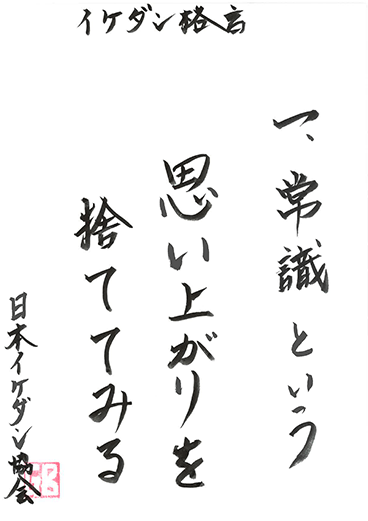 イケダン格言
一、常識という
思い上がりを
捨ててみる
日本イケダン協会